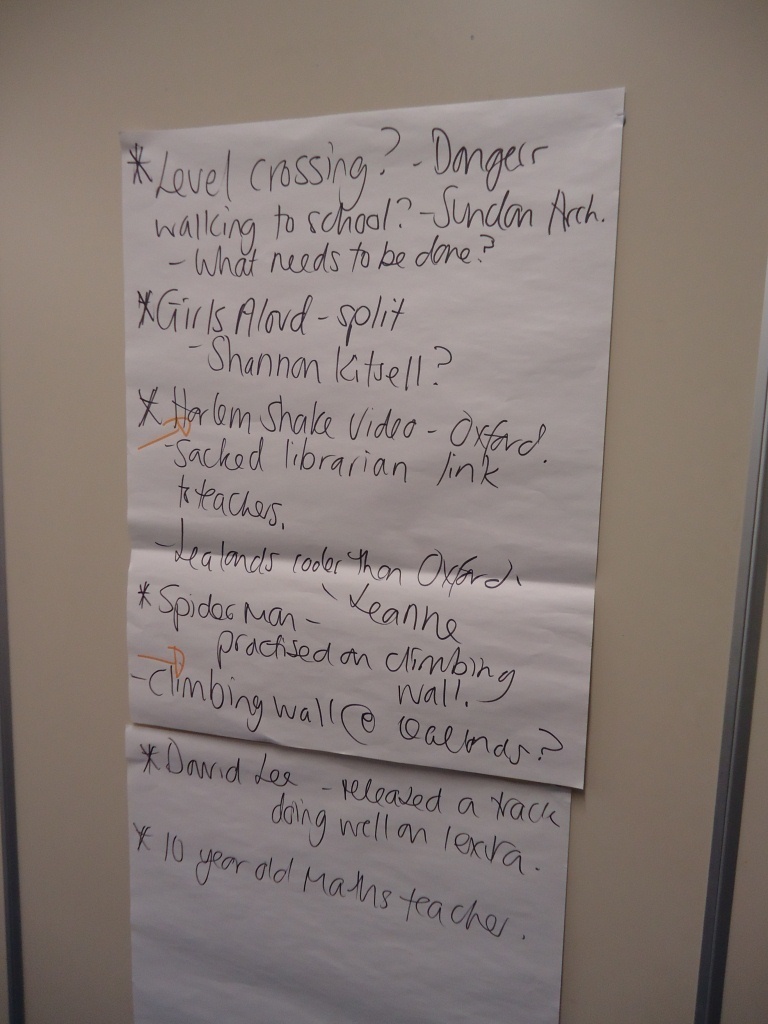 * Level crossing? - Dangerr
walking to school? - Sundon Arch.
- What needs to be done?
* Girls Aloud - split
- Shannon Kitsell?
* Harlem Shake Video - Oxford.
- sacked librarian link
to teachers.
- Lealands cooler than Oxford.
\ Leanne
* Spider Man -
practised on climbing
wall.
- Climbing wall @
* David Lee - released a track
doing well on 1extra.
* 10 year old Maths teacher.